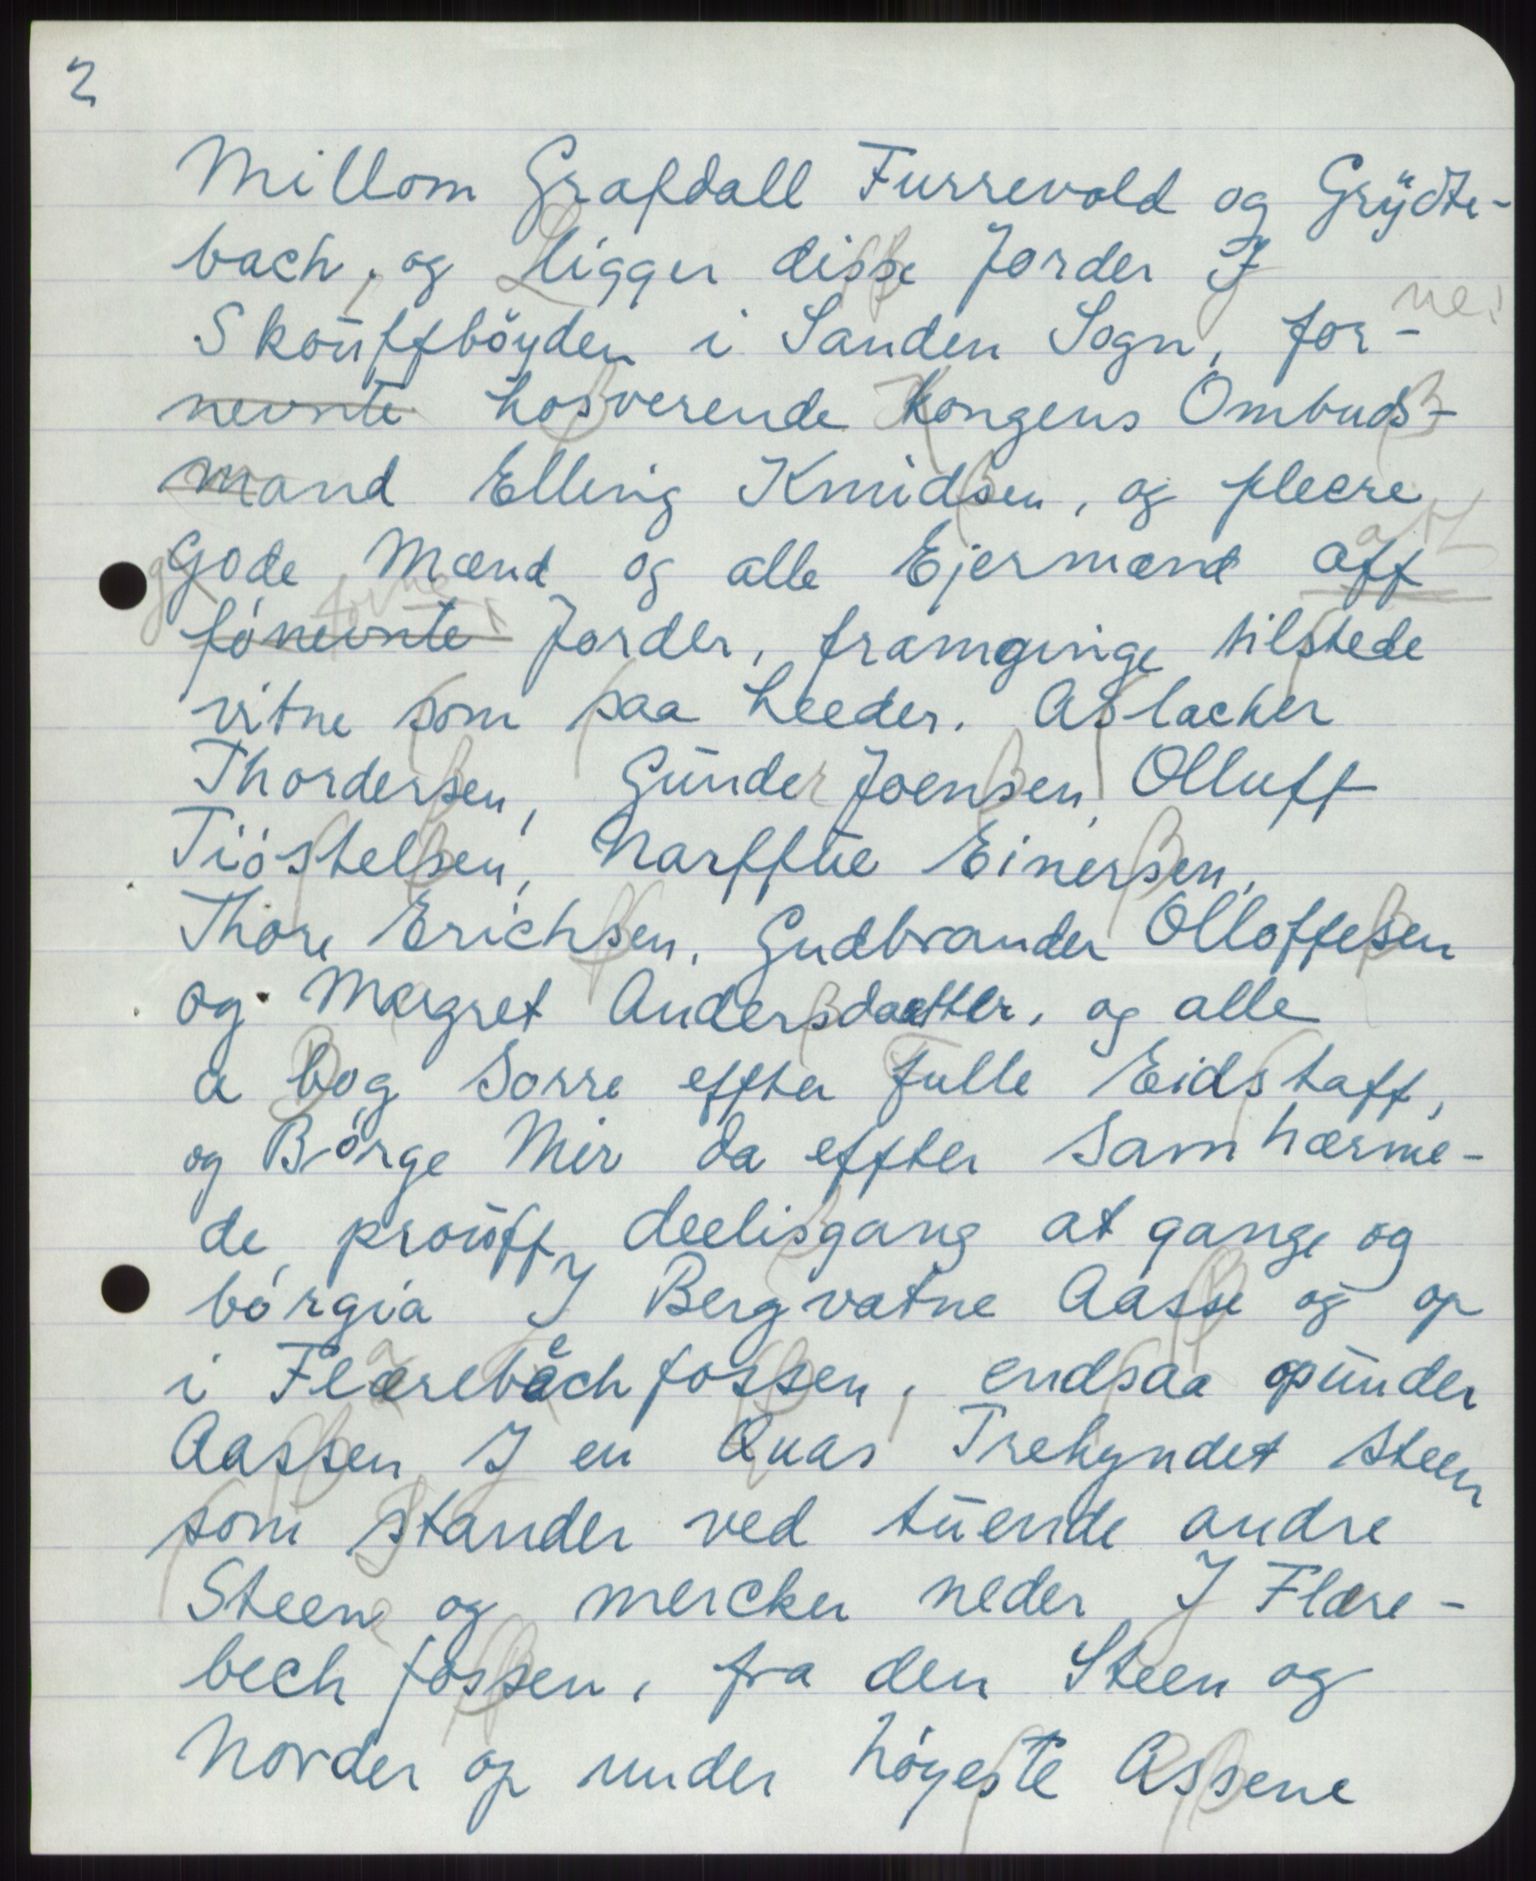 2
Millom Grafdall Furrevold og Grÿdte-
bach, og Lligger disse Jorder I
Skoūffböyden i Sanden Sogn, for-
nevnte hosverende Kongens Ombuds-
mand Elling Knudsen, og fleere
Gode Mænd og alle Ejermænd aff
fónevnte Jorder, framginge tilstede
vitne som saa heeder. Aslacker
Thordersen, Gūnder Joensen, Olluff
Tióstelsen, Narffūe Einersen,
Thore Erichsen, Gudbrander Olloffesen
og Margret Andersdaatter, og alle
a bog Sorre effter fulle Eidstaff,
og Bórge Mir da effter Samhærme-
de proūff deelisgang at gange og
bórgia I Bergvatne Aasse og op
i Flærebäch fossen, endsaa opūnder
Aassen I en Quas Trehyndet Steen
som stander ved tūende andre
Steene og mercker neder I Flære-
bech fossen, fra den Steen og
Norder op under høyeste Assene